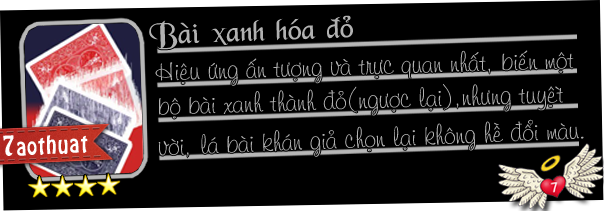 Bài xanh hóa đỏ
Hiệu ứng ấn tượng và trực quan nhất, biến một
bộ bài xanh thành đỏ(ngược lại),nhưng tuyệt
vời, lá bài khán giả chọn lại không hề đổi màu.
7aothuat
7